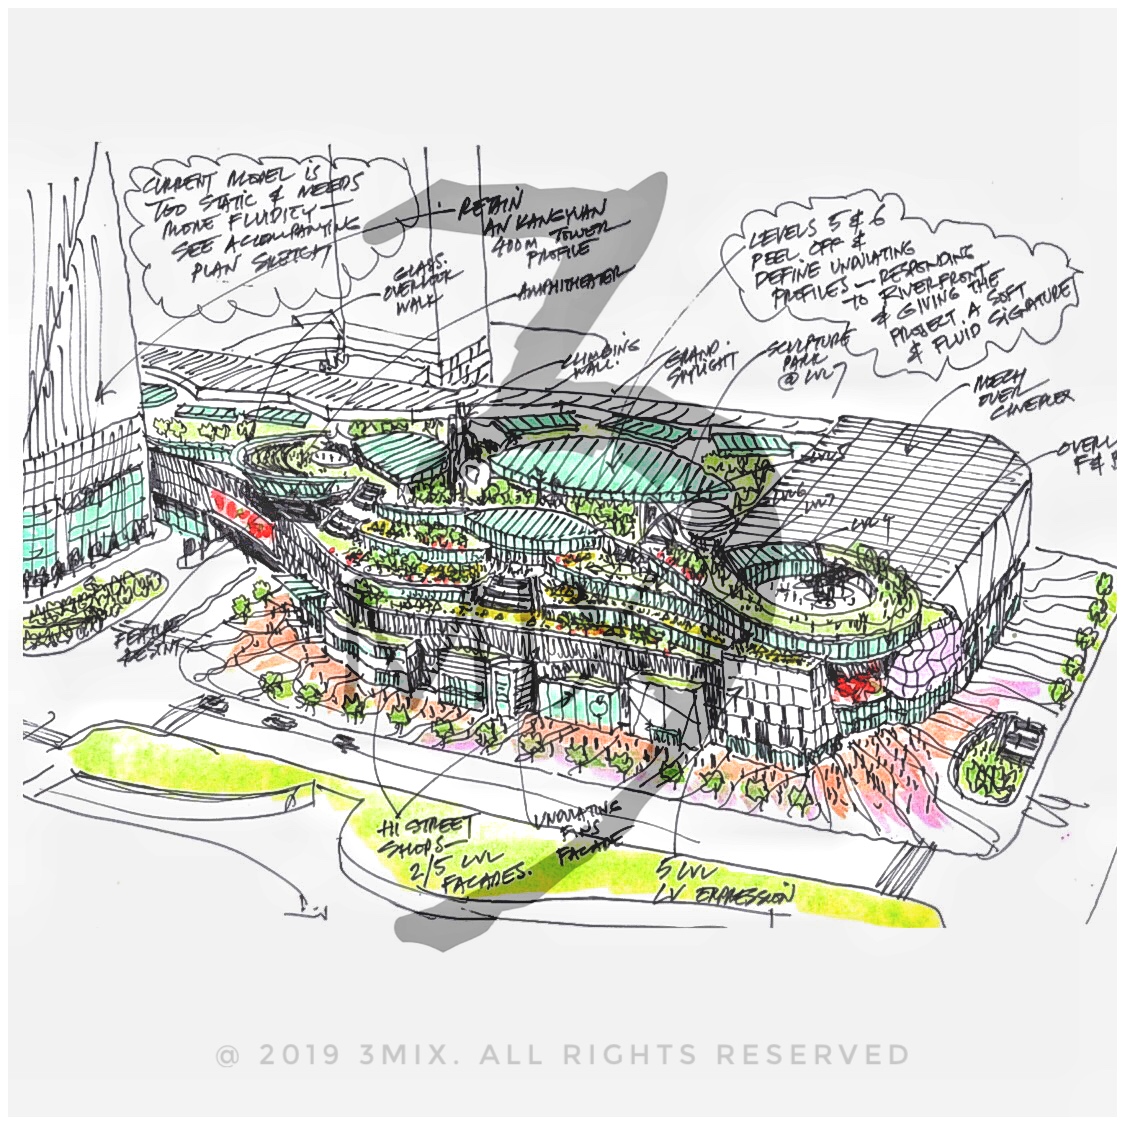 CURRENT MODEL IS
TOO STATIC & NEEDS
MORE FLUIDITY —
SEE ACCOMPANYING
PLAN SKETCH
RETAIN
AN KANGYUAN
400M TOWER
PROFILE
GLASS
OVERLOOK
WALK
AMPHITHEATER
LEVELS 5 & 6
PEEL OFF &
DEFINE UNDULATING
PROFILES — RESPONDING
TO RIVERFRONT
& GIVING THE
PROJECT A SOFT
& FLUID SIGNATURE
CLIMBING
WALL
GRAND
SKYLIGHT
SCULPTURE
PARK
@ LVL 7
MECH
OVER
CINEPLEX
OVER
F &
LVL 5
LVL 6
LVL 7
LVL 4
FEATURE
HI STREET
SHOPS —
2/5 LVL
FACADES.
UNDULATING
FINS
FACADE
5 LVL
LV EXPRESSION
@ 2019 3MIX. ALL RIGHTS RESERVED